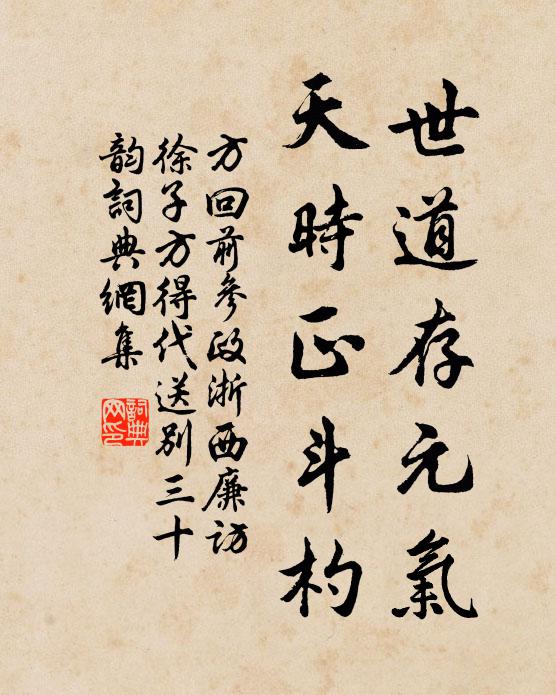 世道存元氣
天時正斗杓
方回前參政浙西廉訪
徐子方得代送別三十
韵詞典網集
詞典网印